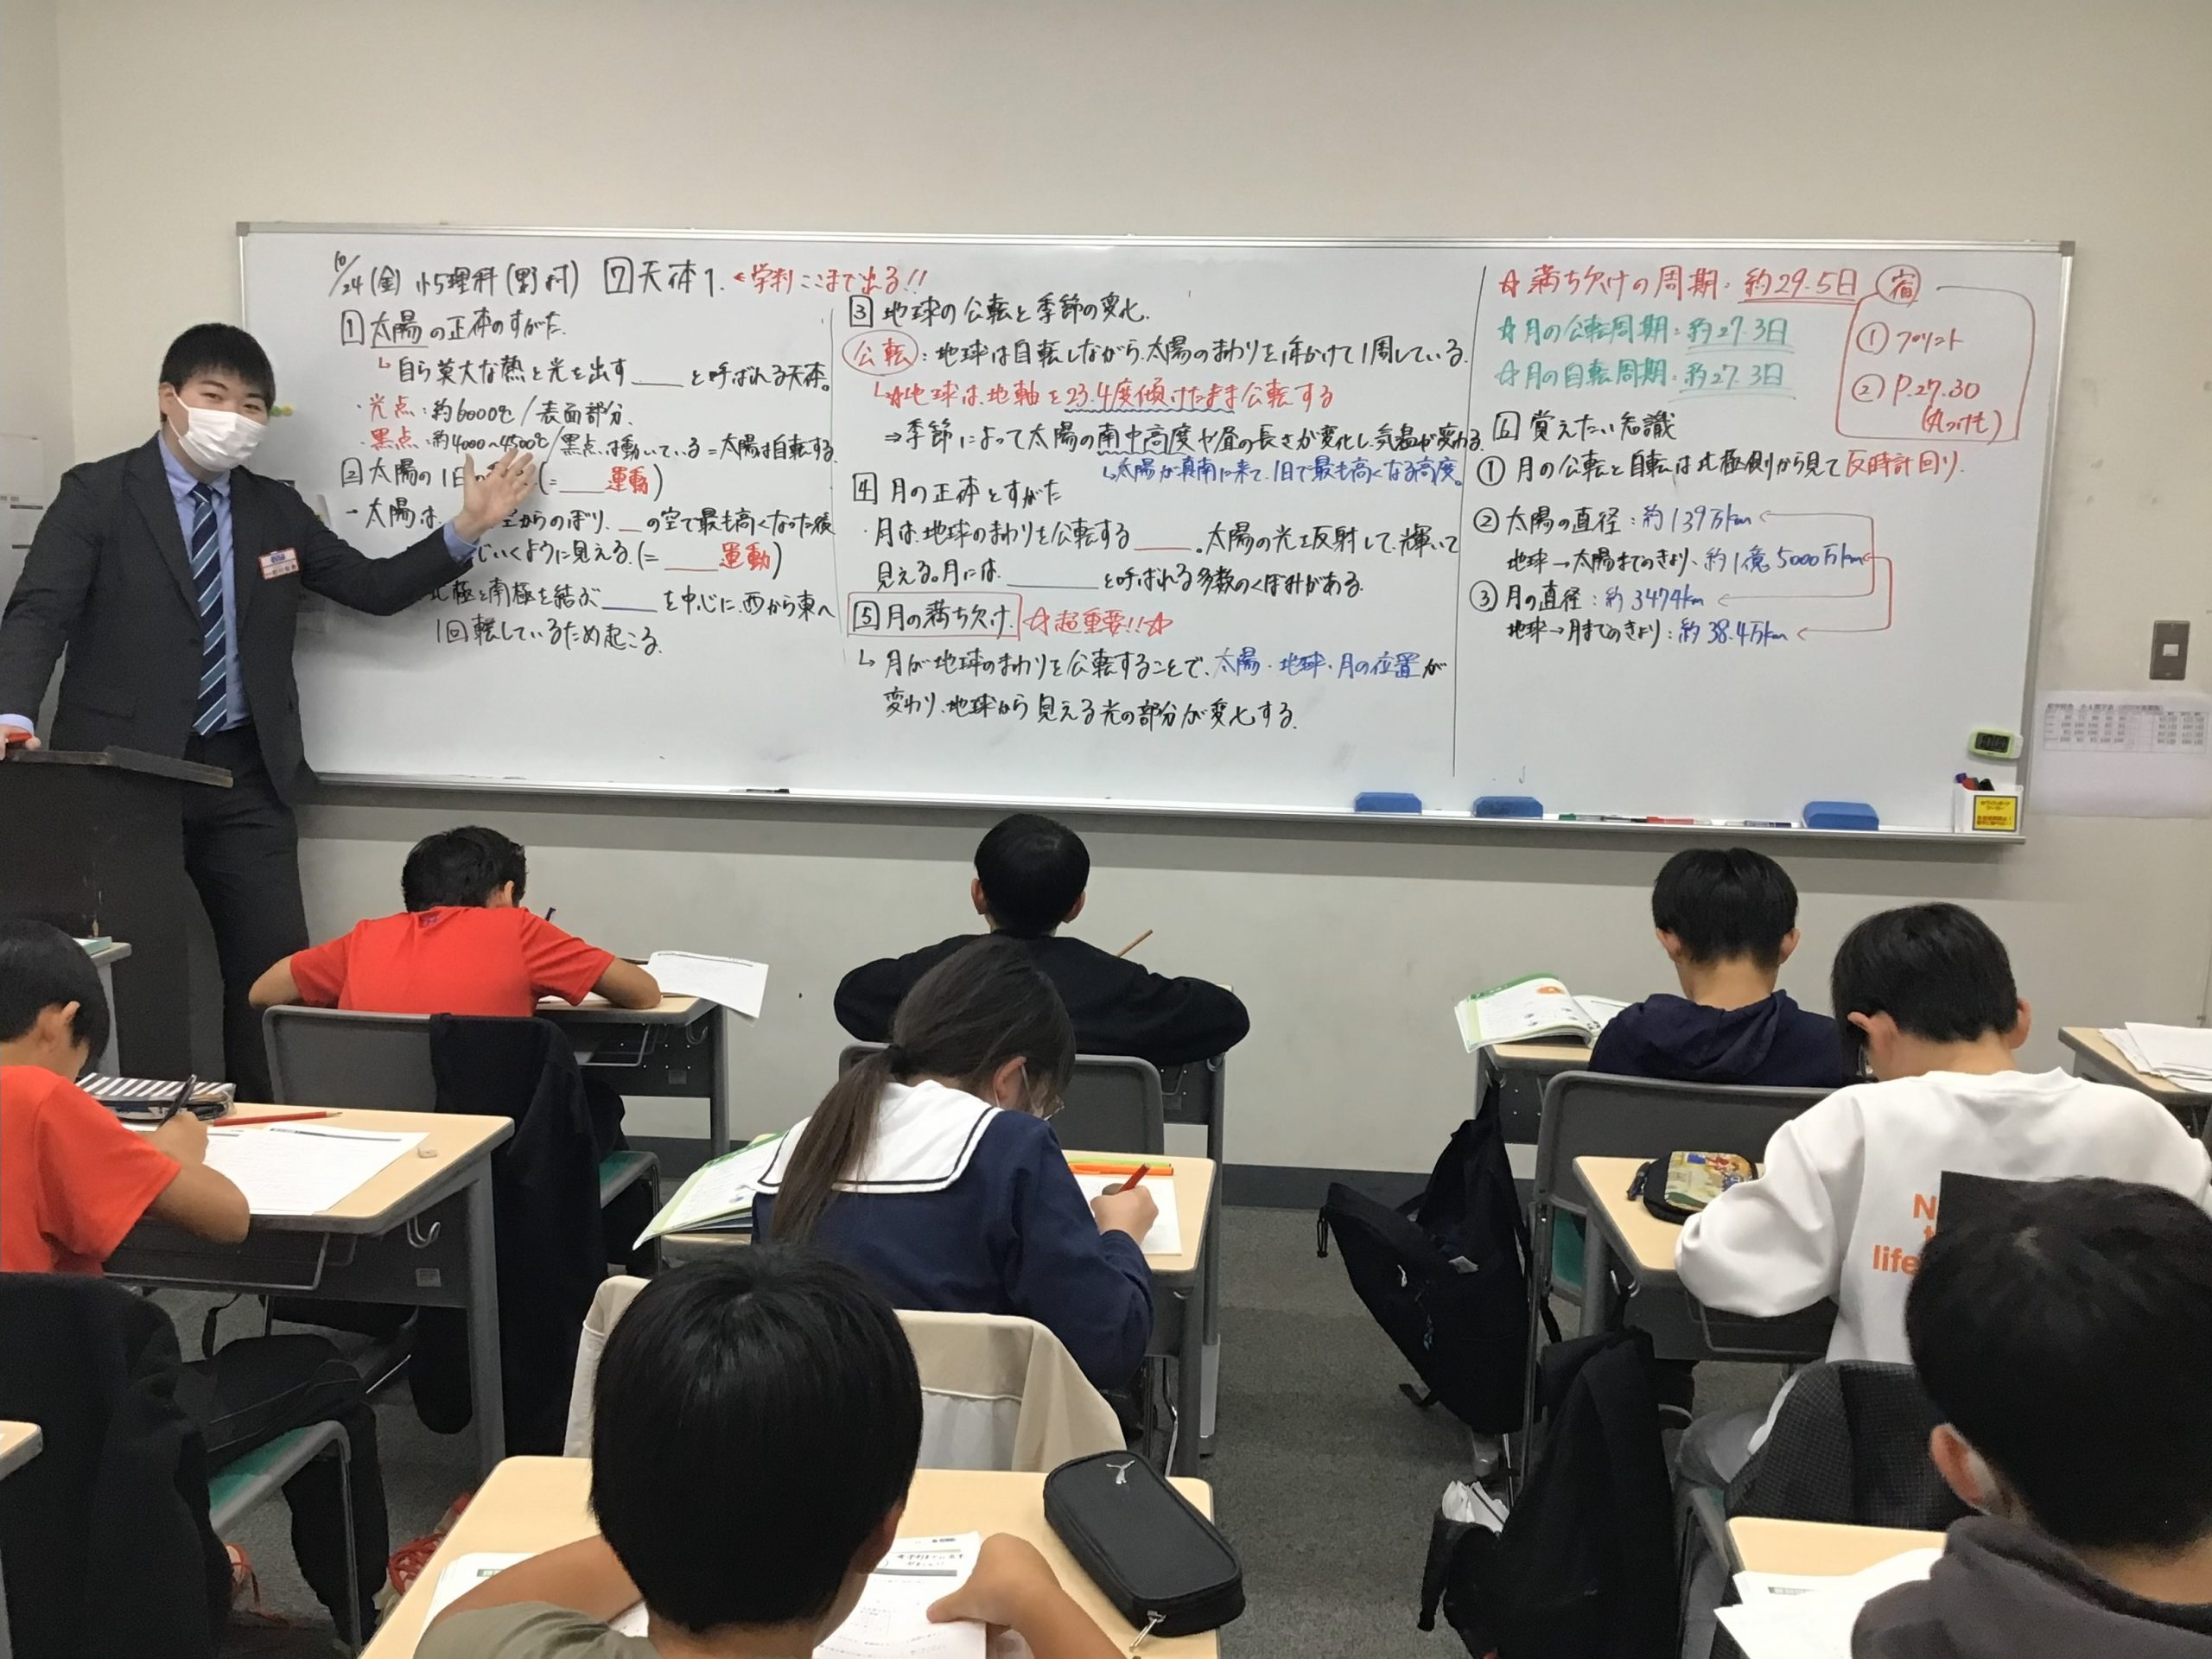 10/24(金) 小5理科(野村) 7 天体1. ←学判ここまで出る!!
1 太陽の正体のすがた.
↳自ら莫大な熱と光を出す____と呼ばれる天体。
・光点:約6000℃/表面部分.
・黒点:約4000~4500℃/黒点は動いている=太陽は自転する.
2 太陽の1日の (=____運動)
→太陽は、 空からのぼり、__の空で最も高くなった後
じいくように見える.(=____運動)
北極と南極を結ぶ____を中心に、西から東へ
1回転しているため起こる.
3 地球の公転と季節の変化.
公転:地球は自転しながら、太陽のまわりを1年かけて1周している.
↳☆地球は、地軸を23.4度傾けたまま公転する
⇒季節によって太陽の南中高度や昼の長さが変化し、気温が変わる.
↳太陽が真南に来て、1日で最も高くなる高度。
4 月の正体とすがた
・月は、地球のまわりを公転する____。太陽の光を反射して、輝いて
見える。月には、______と呼ばれる多数のくぼみがある.
5 月の満ち欠け. ☆超重要!!☆
↳月が地球のまわりを公転することで、太陽・地球・月の位置が
変わり、地球から見える光の部分が変化する.
☆満ち欠けの周期:約29.5日
☆月の公転周期:約27.3日
☆月の自転周期:約27.3日
宿
① プリント
② P.27.30
(丸つけも)
6 覚えたい知識
① 月の公転と自転は北極側から見て反時計回り.
② 太陽の直径:約139万km
地球→太陽までのきょり:約1億5000万km
③ 月の直径:約3474km
地球→月までのきょり:約38.4万km
life